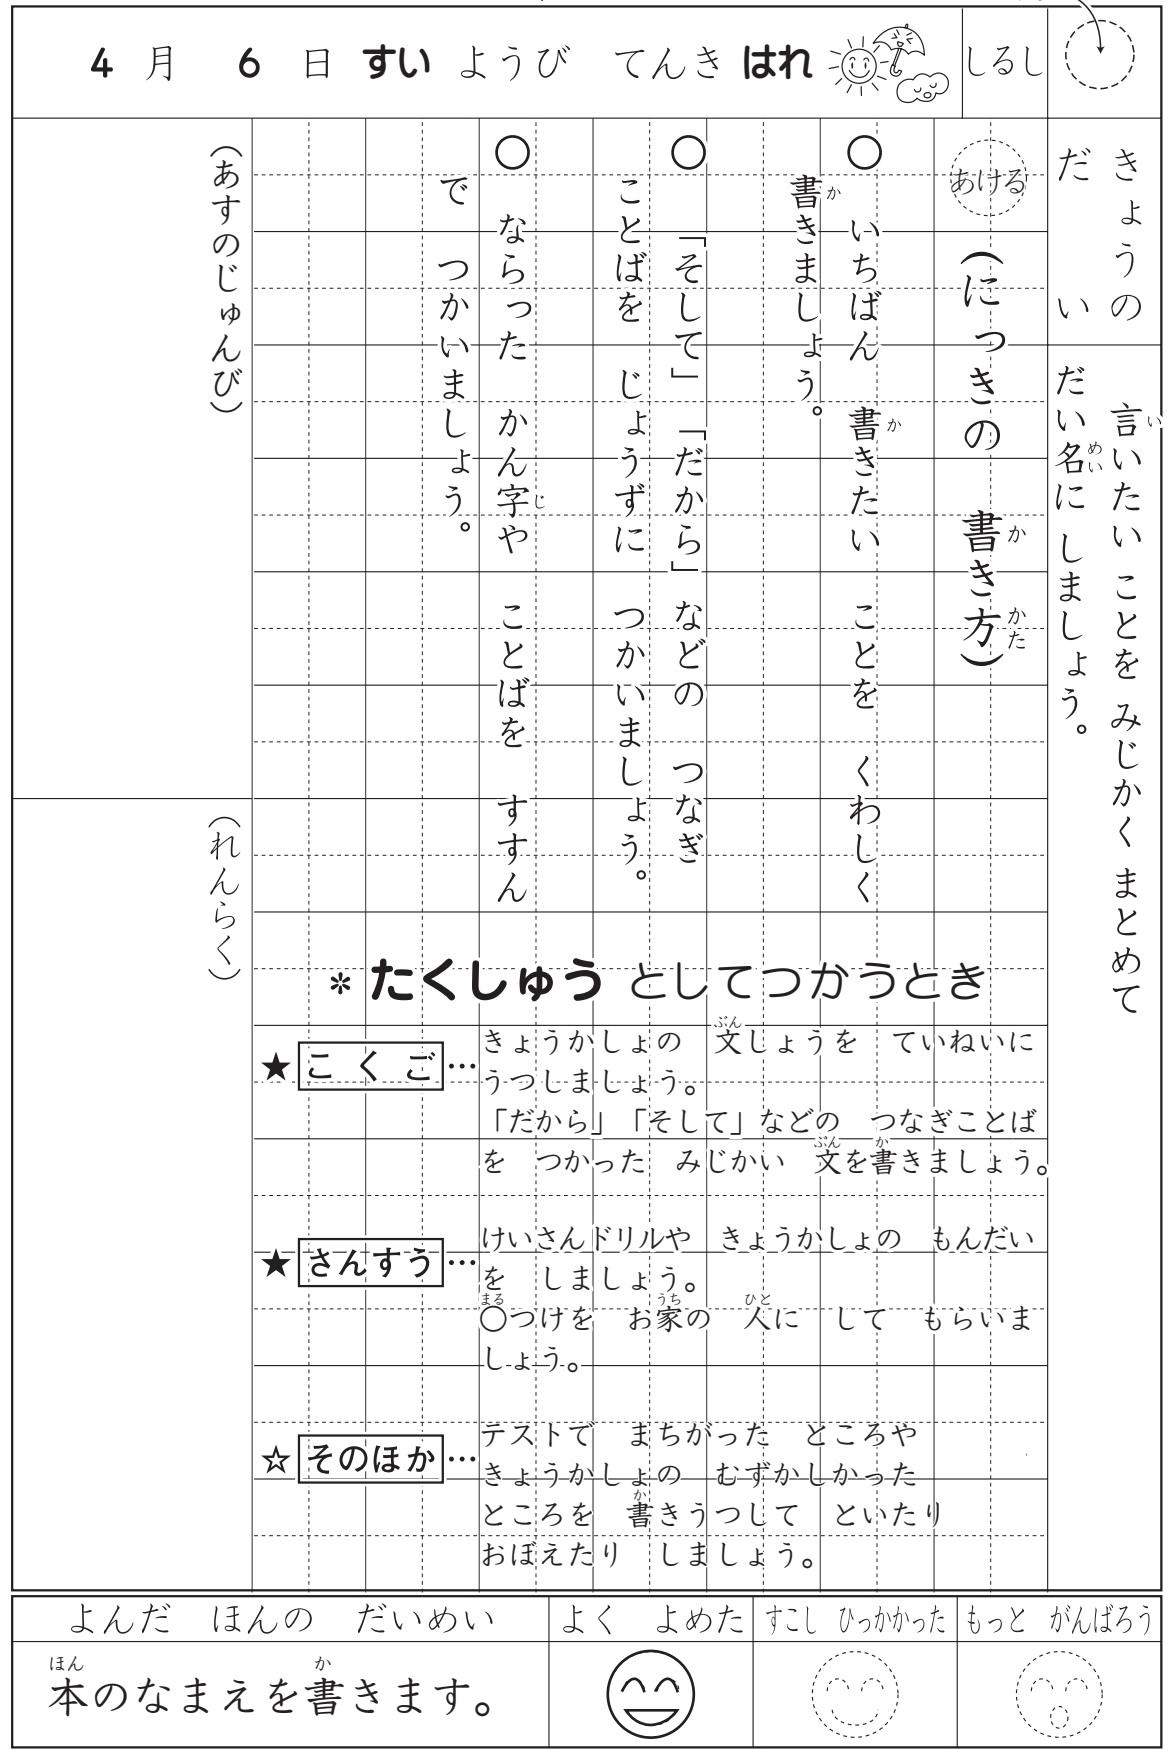 4 月 6 日 すい ようび てんき はれ
しるし
きょうの
だい
言いたい ことを みじかく まとめて
だい名に しましょう。
あける
(にっきの 書き方)
○ いちばん 書きたい ことを くわしく
書きましょう。
○ 「そして」「だから」などの つなぎ
ことばを じょうずに つかいましょう。
○ ならった かん字や ことばを すすん
で つかいましょう。
(あすのじゅんび)
(れんらく)
＊たくしゅう としてつかうとき
★こくご…きょうかしょの 文しょうを ていねいに
うつしましょう。
「だから」「そして」などの つなぎことば
を つかった みじかい 文を書きましょう。
★さんすう…けいさんドリルや きょうかしょの もんだい
を しましょう。
○つけを お家の 人に して もらいま
しょう。
☆そのほか…テストで まちがった ところや
きょうかしょの むずかしかった
ところを 書きうつして といたり
おぼえたり しましょう。
よんだ ほんの だいめい
よく よめた
すこし ひっかかった
もっと がんばろう
本のなまえを書きます。